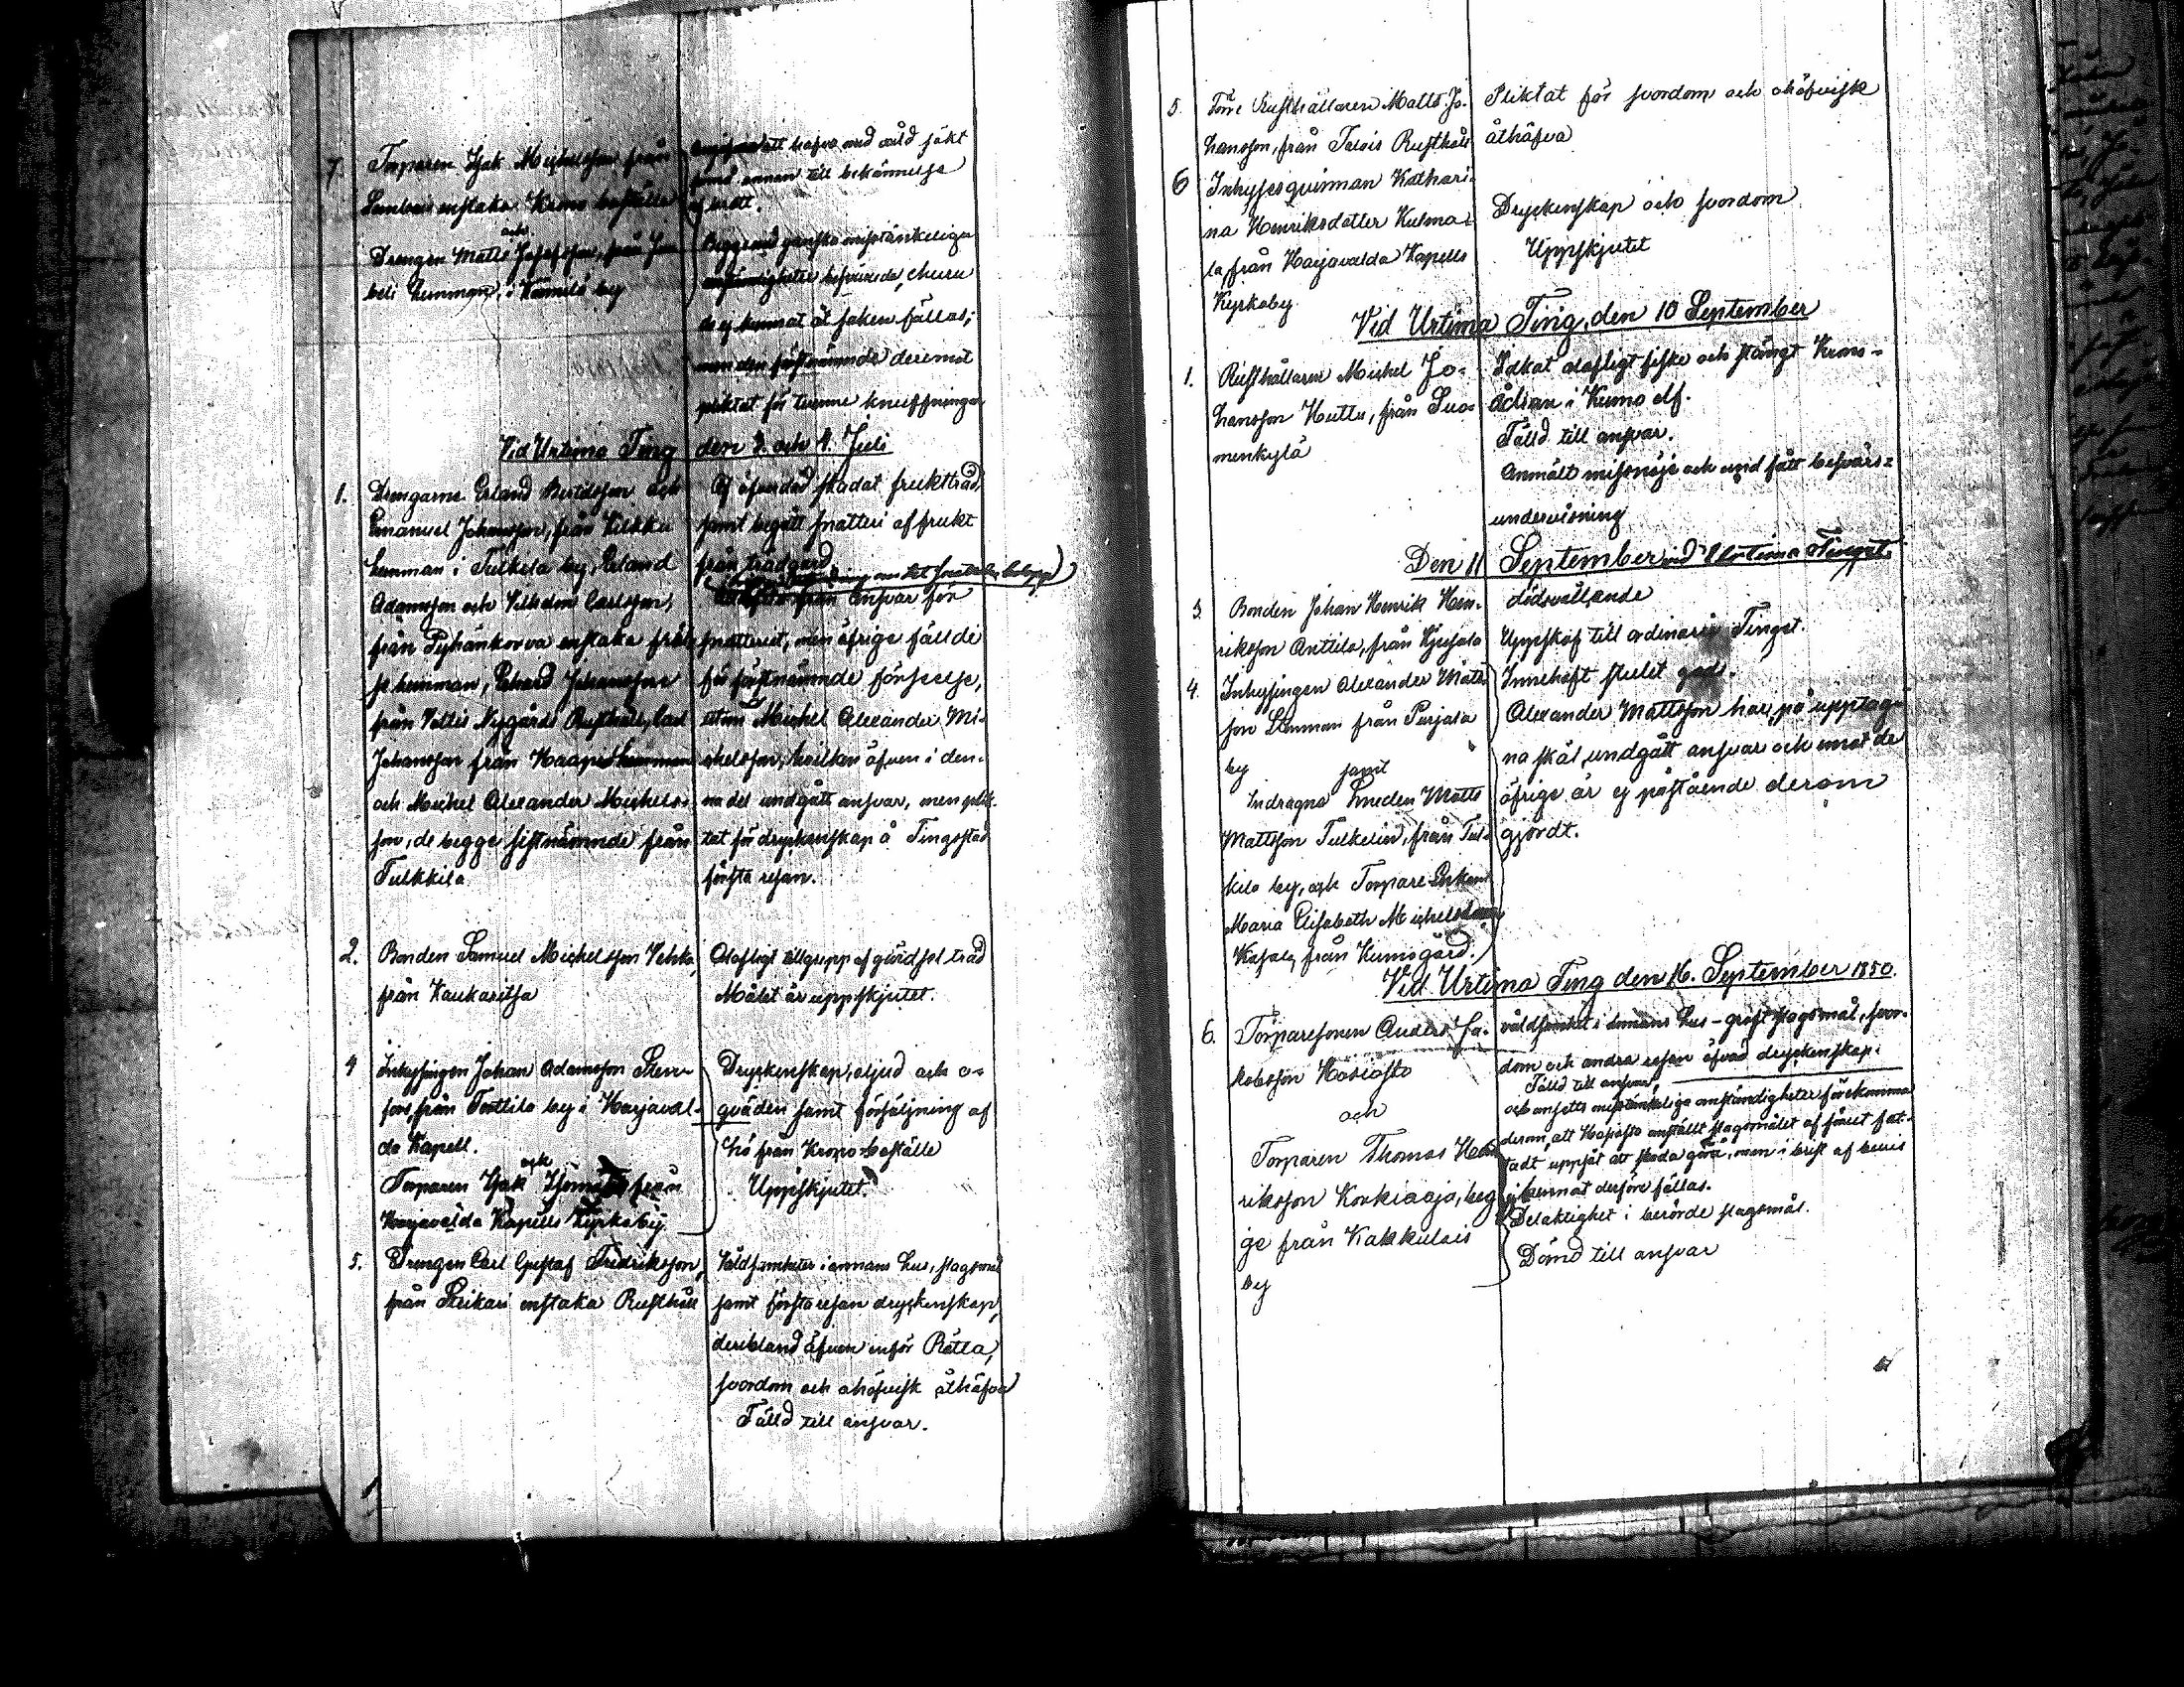 7. Torparen Isak Michelsson från
Lembois enstaka Krono boställe
och
Drengen Matts Josefsson, från Jus
beli hemman, i Kännilä by
att hafva med våld sökt
annan till bekännelse
af brott.
Begge med ganska misstänkeliga
omständigheter besvärade, ehuru
de ej kunnat åt saken fällas;
men den sistnämnde deremot
pliktat för tvenne knuffningar
Vid Urtima Ting den 3. och 4. Juli
1. Drengarne Erland Bertilsson och
Emanuel Johansson, från Vilkku
hemman i Tulkila by, Erland
Adamsson och Vilhelm Carlsson,
från Pyhänkorva enstaka fräl-
se hemman, Johansson
från Vettis Nygårds Rusthåll, Carl
Johansson från Haapa hemman
och Michel Alexander Michels-
son, de begge sistnämnde från
Tulkkila
Af öfverdåd skadat fruktträd,
samt begått snatteri af frukt
från trädgård
från ansvar för
snatteriet, men öfrige fällde
för sistnämnde förseelse,
utom Michel Alexander Mi-
chelsson, hvilken äfven i den-
na del undgått ansvar, men plik-
tat för dryckenskap å Tingsstad
första resan.
2. Bonden Samuel Michelsson Vehka,
från Kaukaritsa
Olofligt tillgrepp af gärdsel träd
Målet är uppskjutet.
4 Inhysingen Johan Adamsson Sten-
fors från Torttila by i Harjaval-
da Kapell.
och
Torparen Isak från
Harjavalda Kapells Kyrkoby.
Dryckenskap, oljud och o-
qväden samt försäljning af
hö från Krono-boställe
Uppskjutet.
5. Drengen Carl Gustaf Fredriksson,
från Leikari enstaka Rusthåll
Våldsamheter i annans hus, slagsmål
samt första resan dryckenskap,
deribland äfven inför Rätta,
svordom och ohöfvisk åthäfva
Fälld till ansvar.
5. Förre Rusthållaren Matts Jo-
hansson, från Talois Rusthåll
Pliktat för svordom och ohöfvisk
åthäfva
6 Inhysesqvinnan Kathari-
na Henriksdotter Kulma-
la, från Harjavalda Kapells
Kyrkoby.
Dryckenskap och svordom
Uppskjutet
Vid Urtima Ting, den 10 September
1. Rusthållaren Michel Jo-
hansson Huttu, från Suo-
menkylä
Idkat olofligt fiske och stängt Krons-
ådran i Kumo elf.
Fälld till ansvar.
Anmält missnöje och und fått besvärs-
undervisning
Den 11 September vid Urtima Tinget.
3. Bonden Johan Henrik Hen-
riksson Anttila, från Kjujala
dödsvållande
Uppsköf till ordinarie Tinget.
4. Inhysingen Alexander Matts-
son Stenman från Purjala
by samt
Indragna Smeden Matts
Mattsson Tulkelin, från Tul-
kila by, och Torpare Enkan
Maria Elisabeth Michelsdotter
Kasala, från Kumogård.
Innehaft stulet gods.
Alexander Mattsson har, på upptag-
na skäl undgått ansvar och emot de
öfrige är ej påstående derom
gjordt.
Vid Urtima Ting den 16. September 1850.
6. Torparesonen Anders Ja-
kobsson Hosiosto
och
Torparen Thomas Hen-
riksson Korkiaoja, beg-
ge från Kakkulais
by
våldsamhet i annans hus - groft slagsmål, svor-
dom och andra resan öfvad dryckenskap.
Fälld till ansvar,
och ansetts misstänkelige omständigheter förekomma
derom, att Hosiosto anställt slagsmålet af förut fat-
tadt uppsåt att skada göra, men i brist af bevis
ej kunnat derföre fällas.
Delaktighet i berörde slagsmål.
Dömd till ansvar